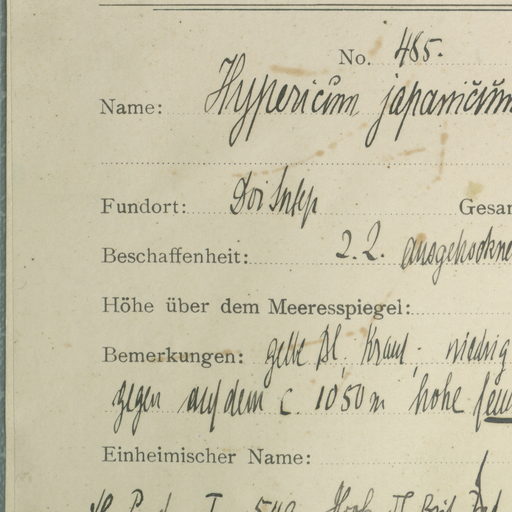 No. 485.
Name: Hypericum japanicum
Fundort: Doi Sutep Gesam
Beschaffenheit: 2.2. ausgetrockne
Höhe über dem Meeresspiegel:
Bemerkungen: gelbe Bl. Kraut; niedrig
gegen auf dem c. 1050m hohe feu
Einheimischer Name: